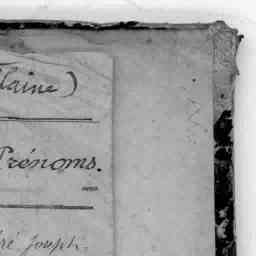 laine)
Prénoms.
ré Joseph.